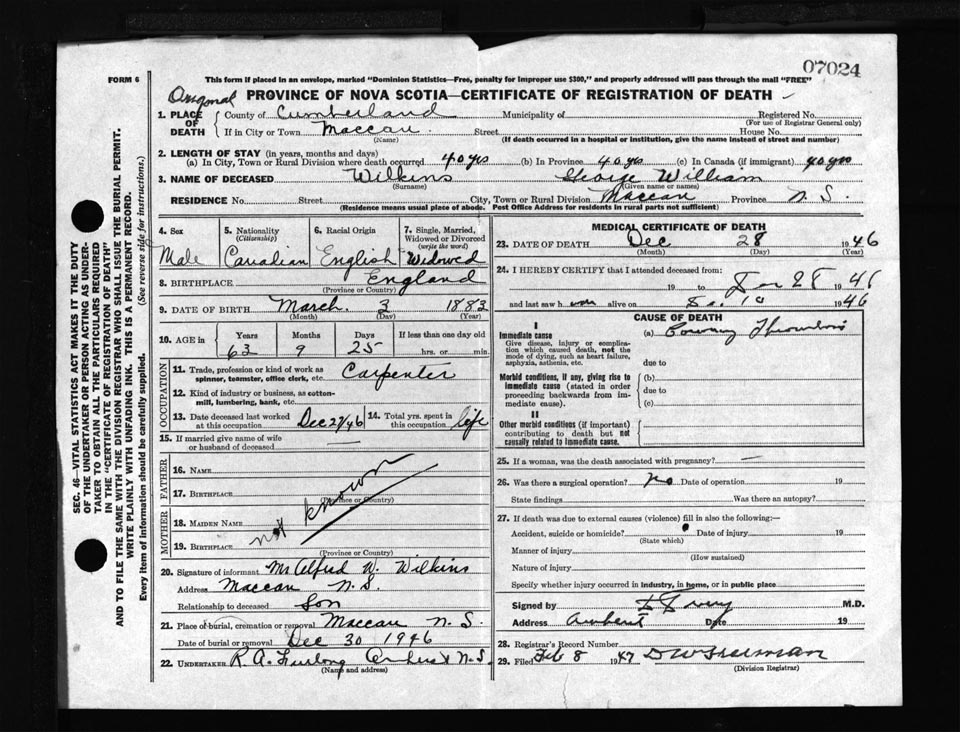 07024
FORM 6
This form if placed in an envelope, marked "Dominion Statistics—Free, penalty for improper use $300," and properly addressed will pass through the mail "FREE"
Original
PROVINCE OF NOVA SCOTIA—CERTIFICATE OF REGISTRATION OF DEATH
1. PLACE OF DEATH
County of Cumberland Municipality of Registered No.
(For use of Registrar General only)
If in City or Town Maccan. Street House No.
(Name) (If death occurred in a hospital or institution, give the name instead of street and number)
2. LENGTH OF STAY (in years, months and days)
(a) In City, Town or Rural Division where death occurred 40 yrs (b) In Province 40 yrs (c) In Canada (if immigrant) 40 yrs
3. NAME OF DECEASED Wilkins George William
(Surname) (Given name or names)
RESIDENCE No. Street City, Town or Rural Division Maccan Province N.S.
(Residence means usual place of abode. Post Office Address for residents in rural parts not sufficient)
4. Sex
Male
5. Nationality
(Citizenship)
Canadian
6. Racial Origin
English
7. Single, Married,
Widowed or Divorced
(write the word)
Widowed
8. BIRTHPLACE England
(Province or Country)
9. DATE OF BIRTH March 3 1883
(Month) (Day) (Year)
10. AGE in
Years Months Days If less than one day old
63 9 25 hrs. or min.
OCCUPATION
11. Trade, profession or kind of work as
spinner, teamster, office clerk, etc. Carpenter
12. Kind of industry or business, as cotton-
mill, lumbering, bank, etc.
13. Date deceased last worked
at this occupation Dec 27/46
14. Total yrs. spent in
this occupation life
15. If married give name of wife
or husband of deceased —
FATHER
16. NAME
17. BIRTHPLACE
(Province or Country)
not known
MOTHER
18. MAIDEN NAME
19. BIRTHPLACE
(Province or Country)
20. Signature of informant Mr Alfred W. Wilkins
Address Maccan N.S.
Relationship to deceased Son
21. Place of burial, cremation or removal Maccan N.S.
Date of burial or removal Dec 30 1946
22. UNDERTAKER R.A. Furlong Amherst N.S.
(Name and address)
MEDICAL CERTIFICATE OF DEATH
23. DATE OF DEATH Dec 28 1946
(Month) (Day) (Year)
24. I HEREBY CERTIFY that I attended deceased from:
19 to Dec 28 1946
and last saw h alive on Dec 10 1946
CAUSE OF DEATH
I
Immediate cause
Give disease, injury or complica-
tion which caused death, not the
mode of dying, such as heart failure,
asphyxia, asthenia, etc.
(a) Coronary Thrombosis
due to
Morbid conditions, if any, giving rise to
immediate cause (stated in order
proceeding backwards from im-
mediate cause).
(b)
due to
(c)
II
Other morbid conditions (if important)
contributing to death but not
causally related to immediate cause.
25. If a woman, was the death associated with pregnancy? —
26. Was there a surgical operation? no Date of operation 19
State findings Was there an autopsy?
27. If death was due to external causes (violence) fill in also the following:—
Accident, suicide or homicide? Date of injury 19
(State which)
Manner of injury
(How sustained)
Nature of injury
Specify whether injury occurred in industry, in home, or in public place
Signed by M.D.
Address Amherst Date 19
28. Registrar's Record Number
29. Filed Feb 8 1947 D W Freeman
(Division Registrar)
SEC. 46—VITAL STATISTICS ACT MAKES IT THE DUTY
OF THE UNDERTAKER OR PERSON ACTING AS UNDER-
TAKER TO OBTAIN ALL THE PARTICULARS REQUIRED
IN THE "CERTIFICATE OF REGISTRATION OF DEATH"
AND TO FILE THE SAME WITH THE DIVISION REGISTRAR WHO SHALL ISSUE THE BURIAL PERMIT.
WRITE PLAINLY WITH UNFADING INK. THIS IS A PERMANENT RECORD.
Every item of information should be carefully supplied. (See reverse side for instructions.)